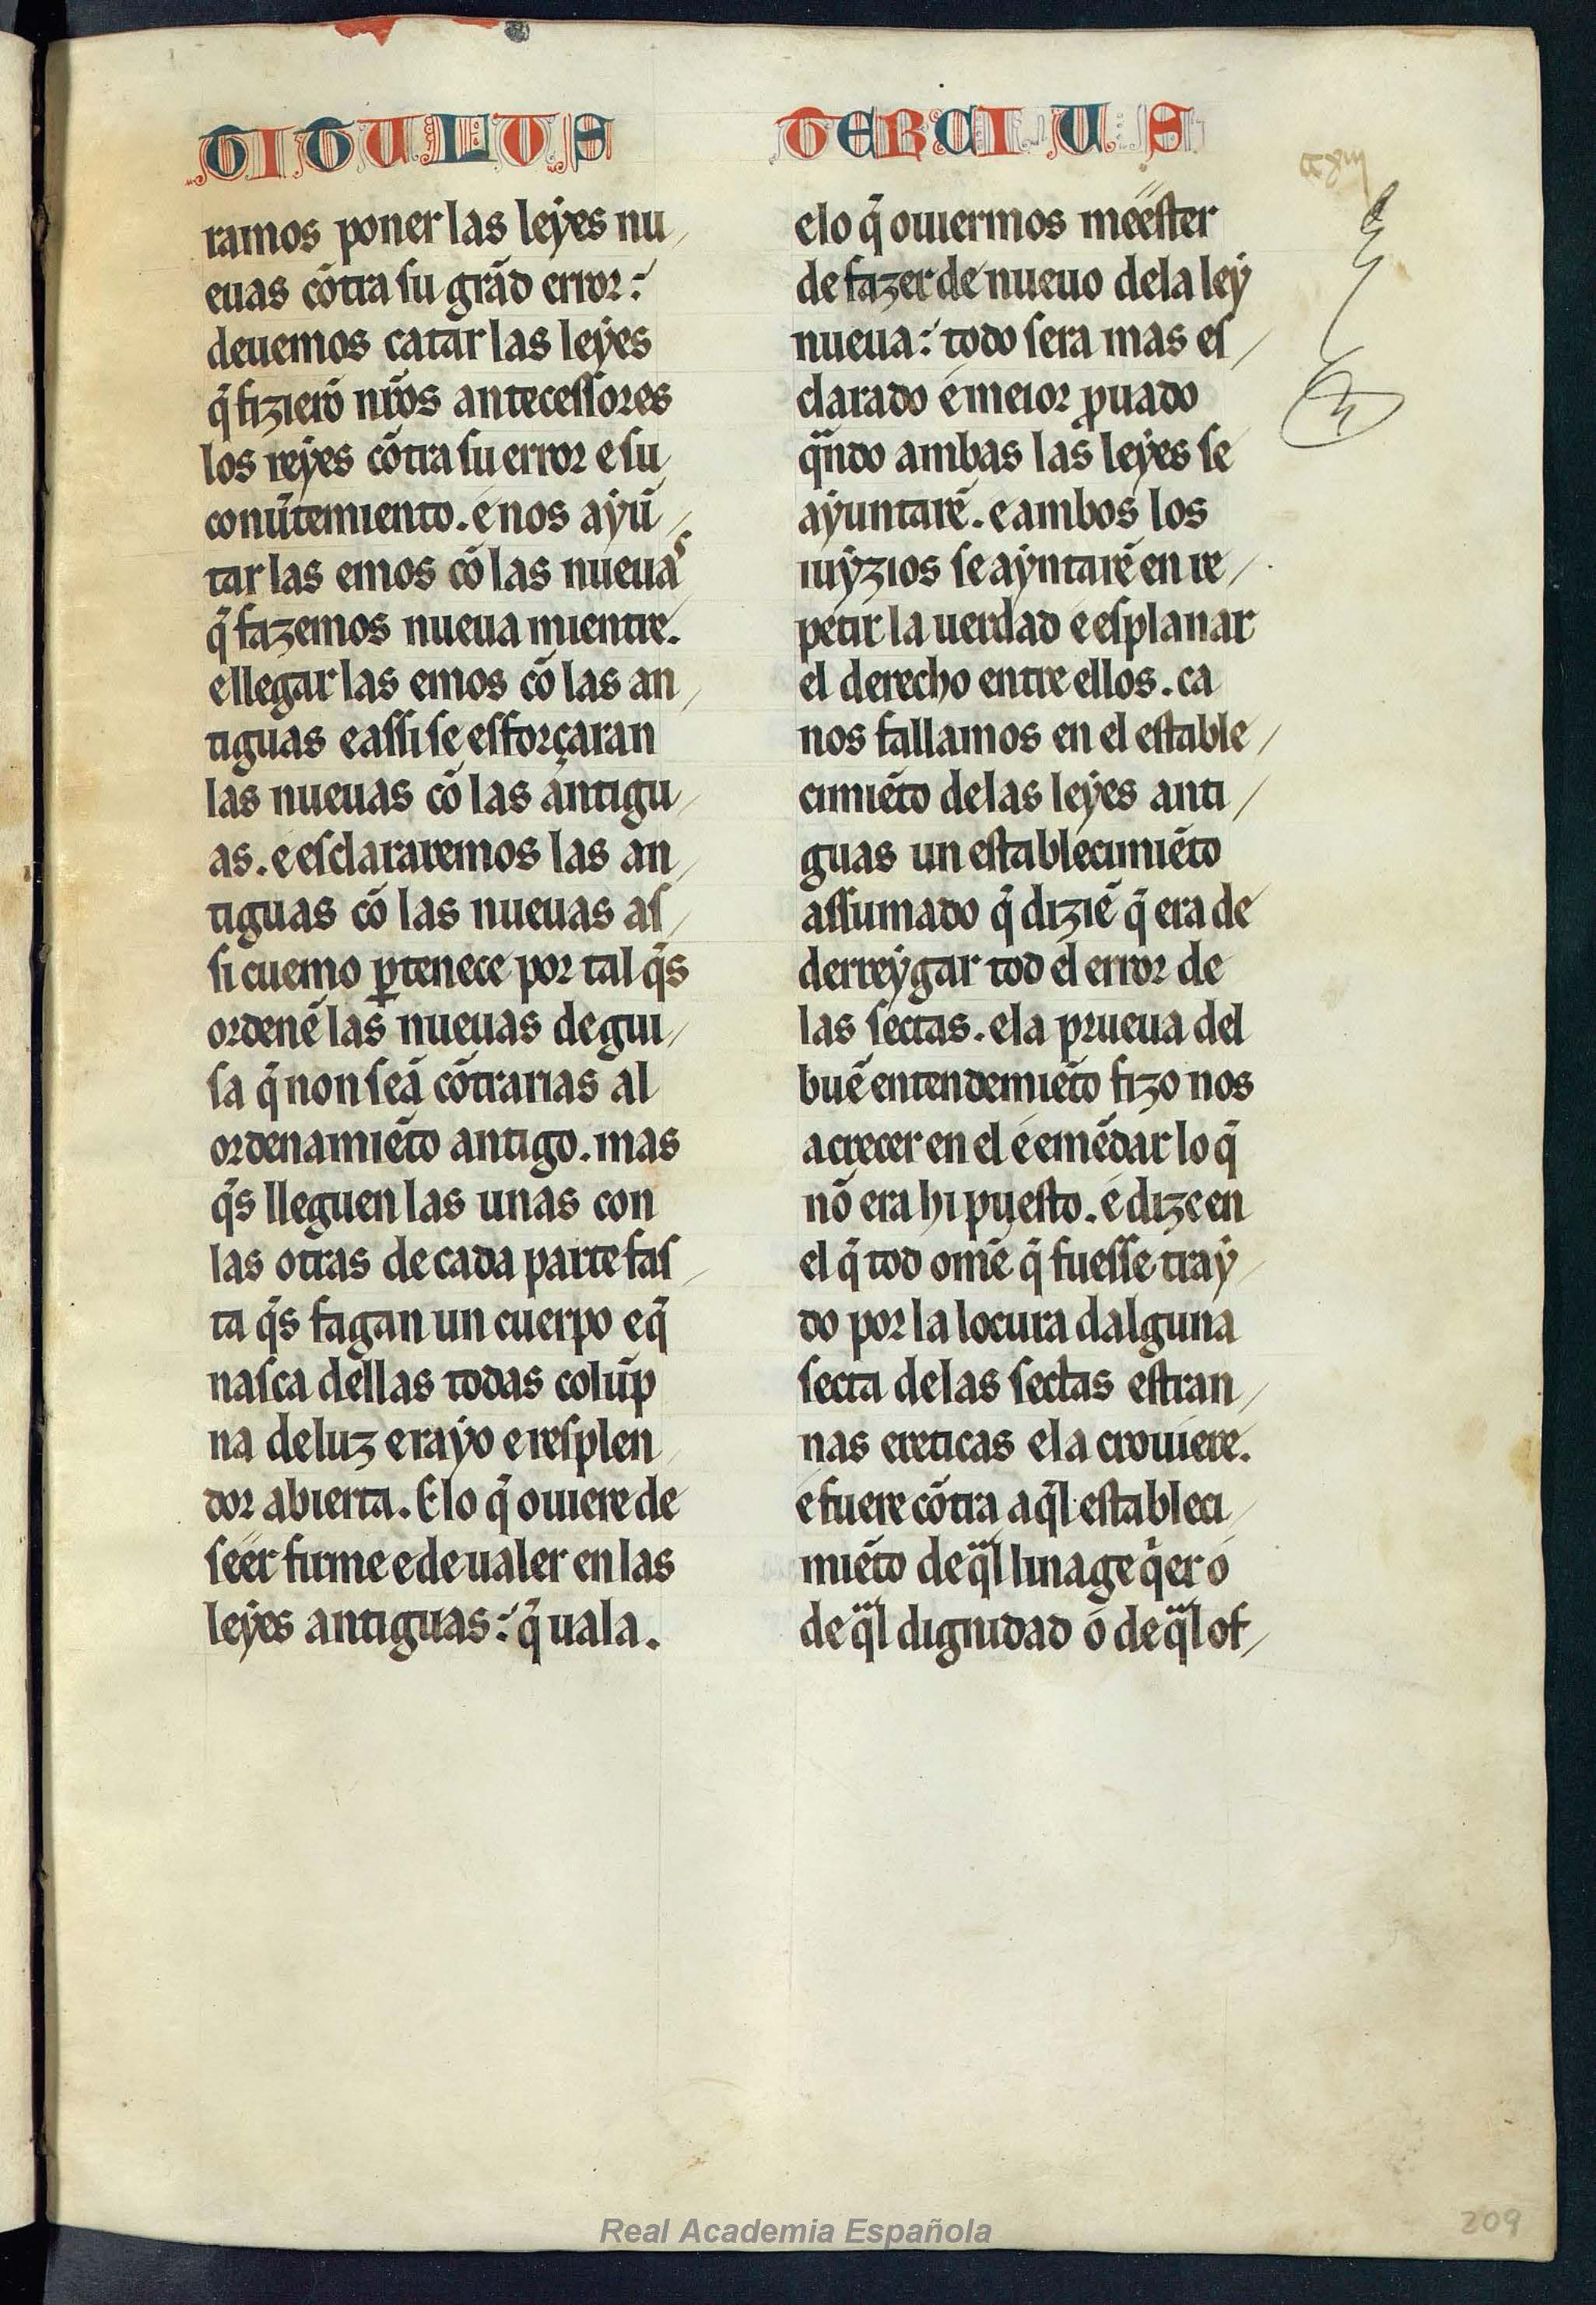 TITULUS TERCIUS
ramos poner las leẏes nu/
euas cõtra su grãd error:
deuemos catar las leẏes
q̃ fizierõ nr̃os antecessores
los reẏes cõtra su error e su
conũtemiento. e nos aẏũ/
tar las emos cõ las nueuas
q̃ fazemos nueua mientre.
e llegar las emos cõ las an/
tiguas e assi se esforçaran
las nueuas cõ las antigu/
as. e esclararemos las an/
tiguas cõ las nueuas as/
si cuemo ꝑtenece por tal q̃s
ordenẽ las nueuas de gui/
sa q̃ non seã cõtrarias al
ordenamiẽto antigo. mas
q̃s lleguen las unas con
las otras de cada parte fas/
ta q̃s fagan un cuerpo e q̃
nasca dellas todas colũp
na de luz e rayo e resplen/
dor abierta. E lo q̃ ouiere de
seer firme e de ualer en las
leẏes antiguas: q̃ uala.
e lo q̃ ouiermos meester
de fazer de nueuo de la leẏ
nueua: todo sera mas es/
clarado e meior ꝓuado
qñdo ambas las leẏes se
aẏuntarẽ. e ambos los
iuẏzios se aẏntarẽ en re/
petir la uerdad e esplanar
el derecho entre ellos. ca
nos fallamos en el estable/
cimiẽto de las leẏes anti/
guas un establecimiẽto
assumado q̃ dizie᷈ q̃ era de
derreẏgar tod el error de
las sectas. e la prueua del
buẽ entendemiẽto fizo nos
acrecer en el e emẽdar lo q̃
nõ era hi puesto. e dize en
el q̃ tod ome᷈ q̃ fuesse traẏ/
do por la locura dalguna
secta de las sectas estran/
nas ereticas e la crouiere.
e fuere cõtra aq̃l estableci/
miẽto de q̃l linage q̃er o
de q̃l dignidad o de q̃l of/
Real Academia Española
209